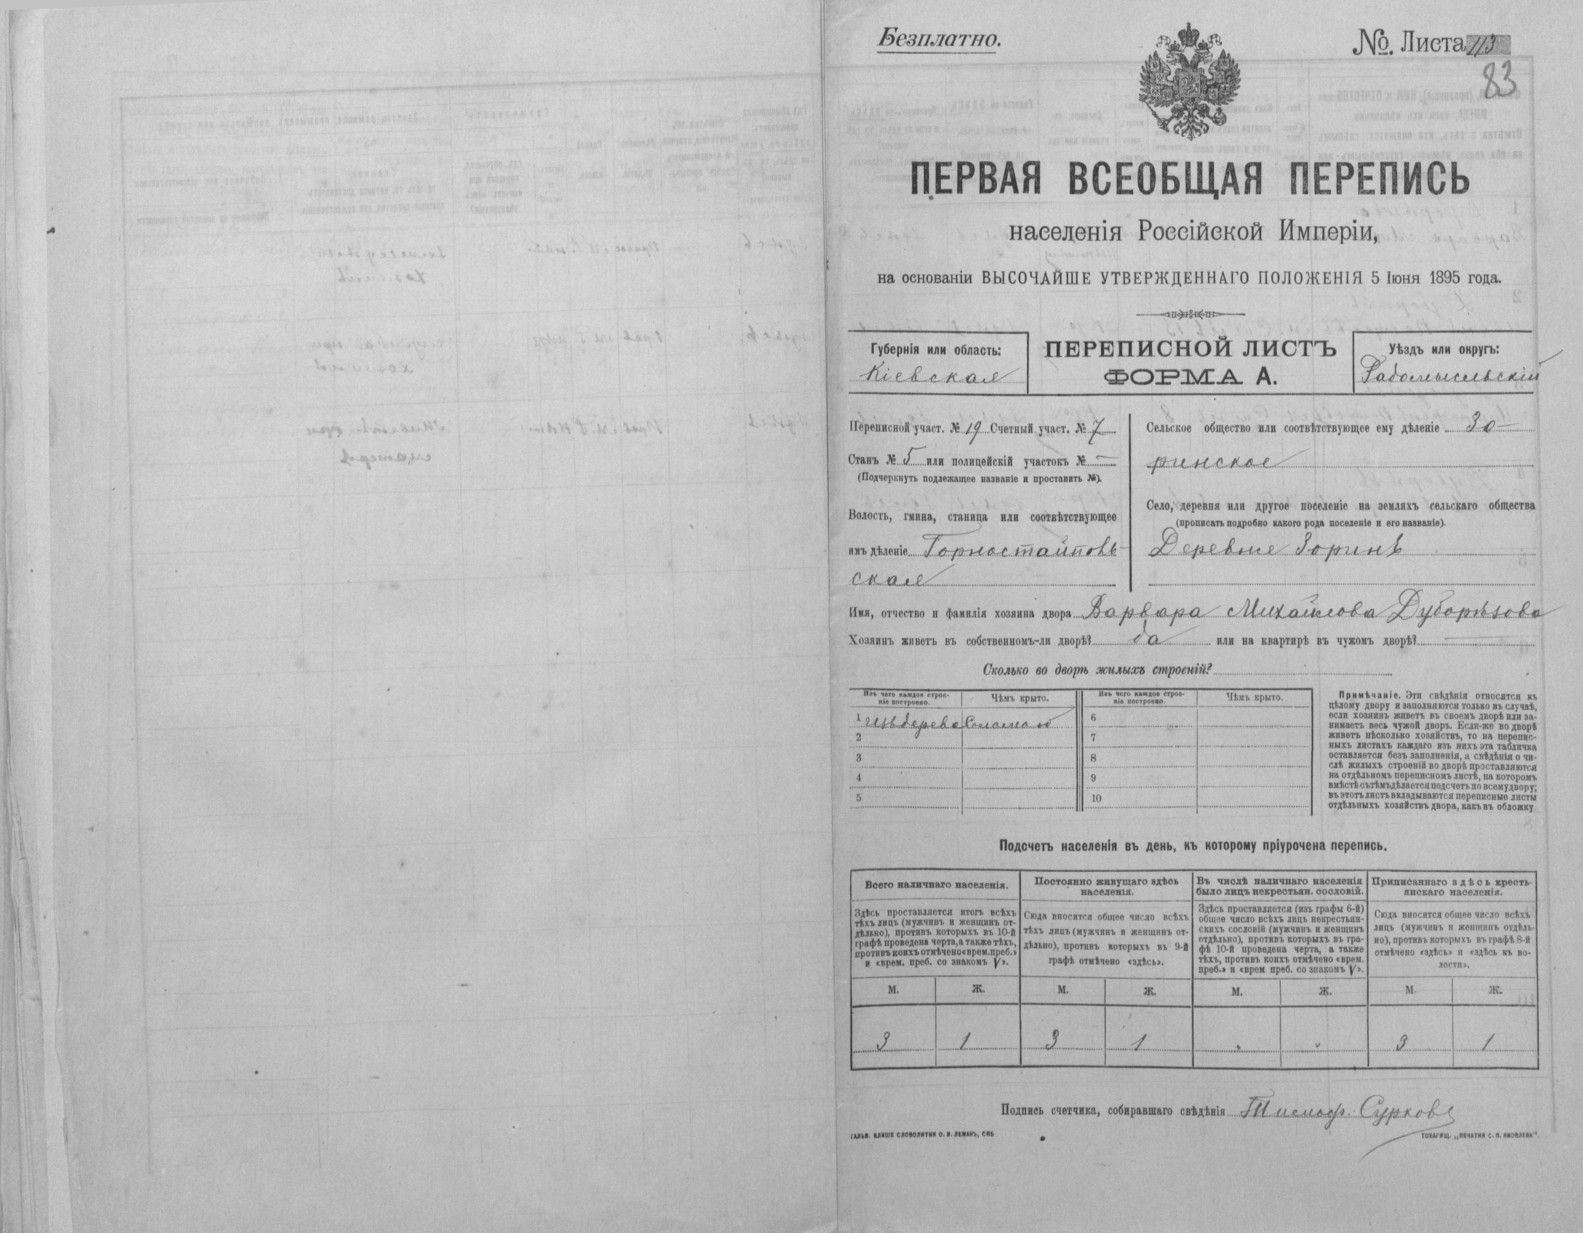 Безплатно.
№. Листа 113
83
ПЕРВАЯ ВСЕОБЩАЯ ПЕРЕПИСЬ
населенія Россійской Имперіи,
на основаніи ВЫСОЧАЙШЕ УТВЕРЖДЕННАГО ПОЛОЖЕНІЯ 5 Іюня 1895 года.
Губернія или область:
Кіевская
ПЕРЕПИСНОЙ ЛИСТЪ
ФОРМА А.
Уѣздъ или округъ:
Радомысльскій
Переписной участ. № 19 Счетный участ. № 7
Станъ № 5 или полицейскій участокъ № —
(Подчеркнуть подлежащее названіе и проставить №).
Волость, гмина, станица или соотвѣтствующее
имъ дѣленіе Горностайповь-
ская
Сельское общество или соотвѣтствующее ему дѣленіе Зо-
ринское
Село, деревня или другое поселеніе на земляхъ сельскаго общества
(прописать подробно какого рода поселеніе и его названіе).
Деревня Зоринъ
Имя, отчество и фамилія хозяина двора Варвара Михайлова Дуборѣзова
Хозяинъ живетъ въ собственномъ-ли дворѣ? да или на квартирѣ въ чужомъ дворѣ? —
Сколько во дворѣ жилыхъ строеній?
Изъ чего каждое строе-
ніе построено.
Чѣмъ крыто.
Изъ чего каждое строе-
ніе построено.
Чѣмъ крыто.
1 изъ дерева Соломою
2
3
4
5
6
7
8
9
10
Примѣчаніе. Эти свѣдѣнія относятся къ
цѣлому двору и заполняются только въ случаѣ,
если хозяинъ живетъ въ своемъ дворѣ или за-
нимаетъ весь чужой дворъ. Если-же во дворѣ
живетъ нѣсколько хозяйствъ, то на перепис-
ныхъ листахъ каждаго изъ нихъ эта табличка
оставляется безъ заполненія, а свѣдѣнія о чи-
слѣ жилыхъ строеній во дворѣ проставляются
на отдѣльномъ переписномъ листѣ, на которомъ
вмѣстѣ съ тѣмъ дѣлается подсчетъ по всему двору;
въ этотъ листъ вкладываются переписные листы
отдѣльныхъ хозяйствъ двора, какъ въ обложку
Подсчетъ населенія въ день, къ которому пріурочена перепись.
Всего наличнаго населенія.
Здѣсь проставляется итогъ всѣхъ
тѣхъ лицъ (мужчинъ и женщинъ от-
дѣльно), противъ которыхъ въ 10-й
графѣ проведена черта, а также тѣхъ,
противъ коихъ отмѣчено «врем. преб.»
и «врем. преб. со знакомъ V».
Постоянно живущаго здѣсь
населенія.
Сюда вносится общее число всѣхъ
тѣхъ лицъ (мужчинъ и женщинъ от-
дѣльно), противъ которыхъ въ 9-й
графѣ отмѣчено «здѣсь».
Въ числѣ наличнаго населенія
было лицъ некрестьян. сословій.
Здѣсь проставляется (изъ графы 6-й)
общее число всѣхъ лицъ некрестьян-
скихъ сословій (мужчинъ и женщинъ
отдѣльно), противъ которыхъ въ гра-
фѣ 10-й проведена черта, а также
тѣхъ, противъ коихъ отмѣчено «врем.
преб.» и «врем. преб. со знакомъ V».
Приписаннаго здѣсь кресть-
янскаго населенія.
Сюда вносится общее число всѣхъ
лицъ (мужчинъ и женщинъ отдѣль-
но), противъ которыхъ въ графѣ 8-й
отмѣчено «здѣсь» и «здѣсь къ во-
лости».
М. Ж. М. Ж. М. Ж. М. Ж.
3 1 3 1 „ „ 3 1
Подпись счетчика, собиравшаго свѣдѣнія Тимоф. Сурковъ
ГАЛЬВ. КЛИШЕ СЛОВОЛИТНИ О. И. ЛЕМАНЪ, СПБ
ТОВАРИЩ. „ПЕЧАТНЯ С. П. ЯКОВЛЕВА".